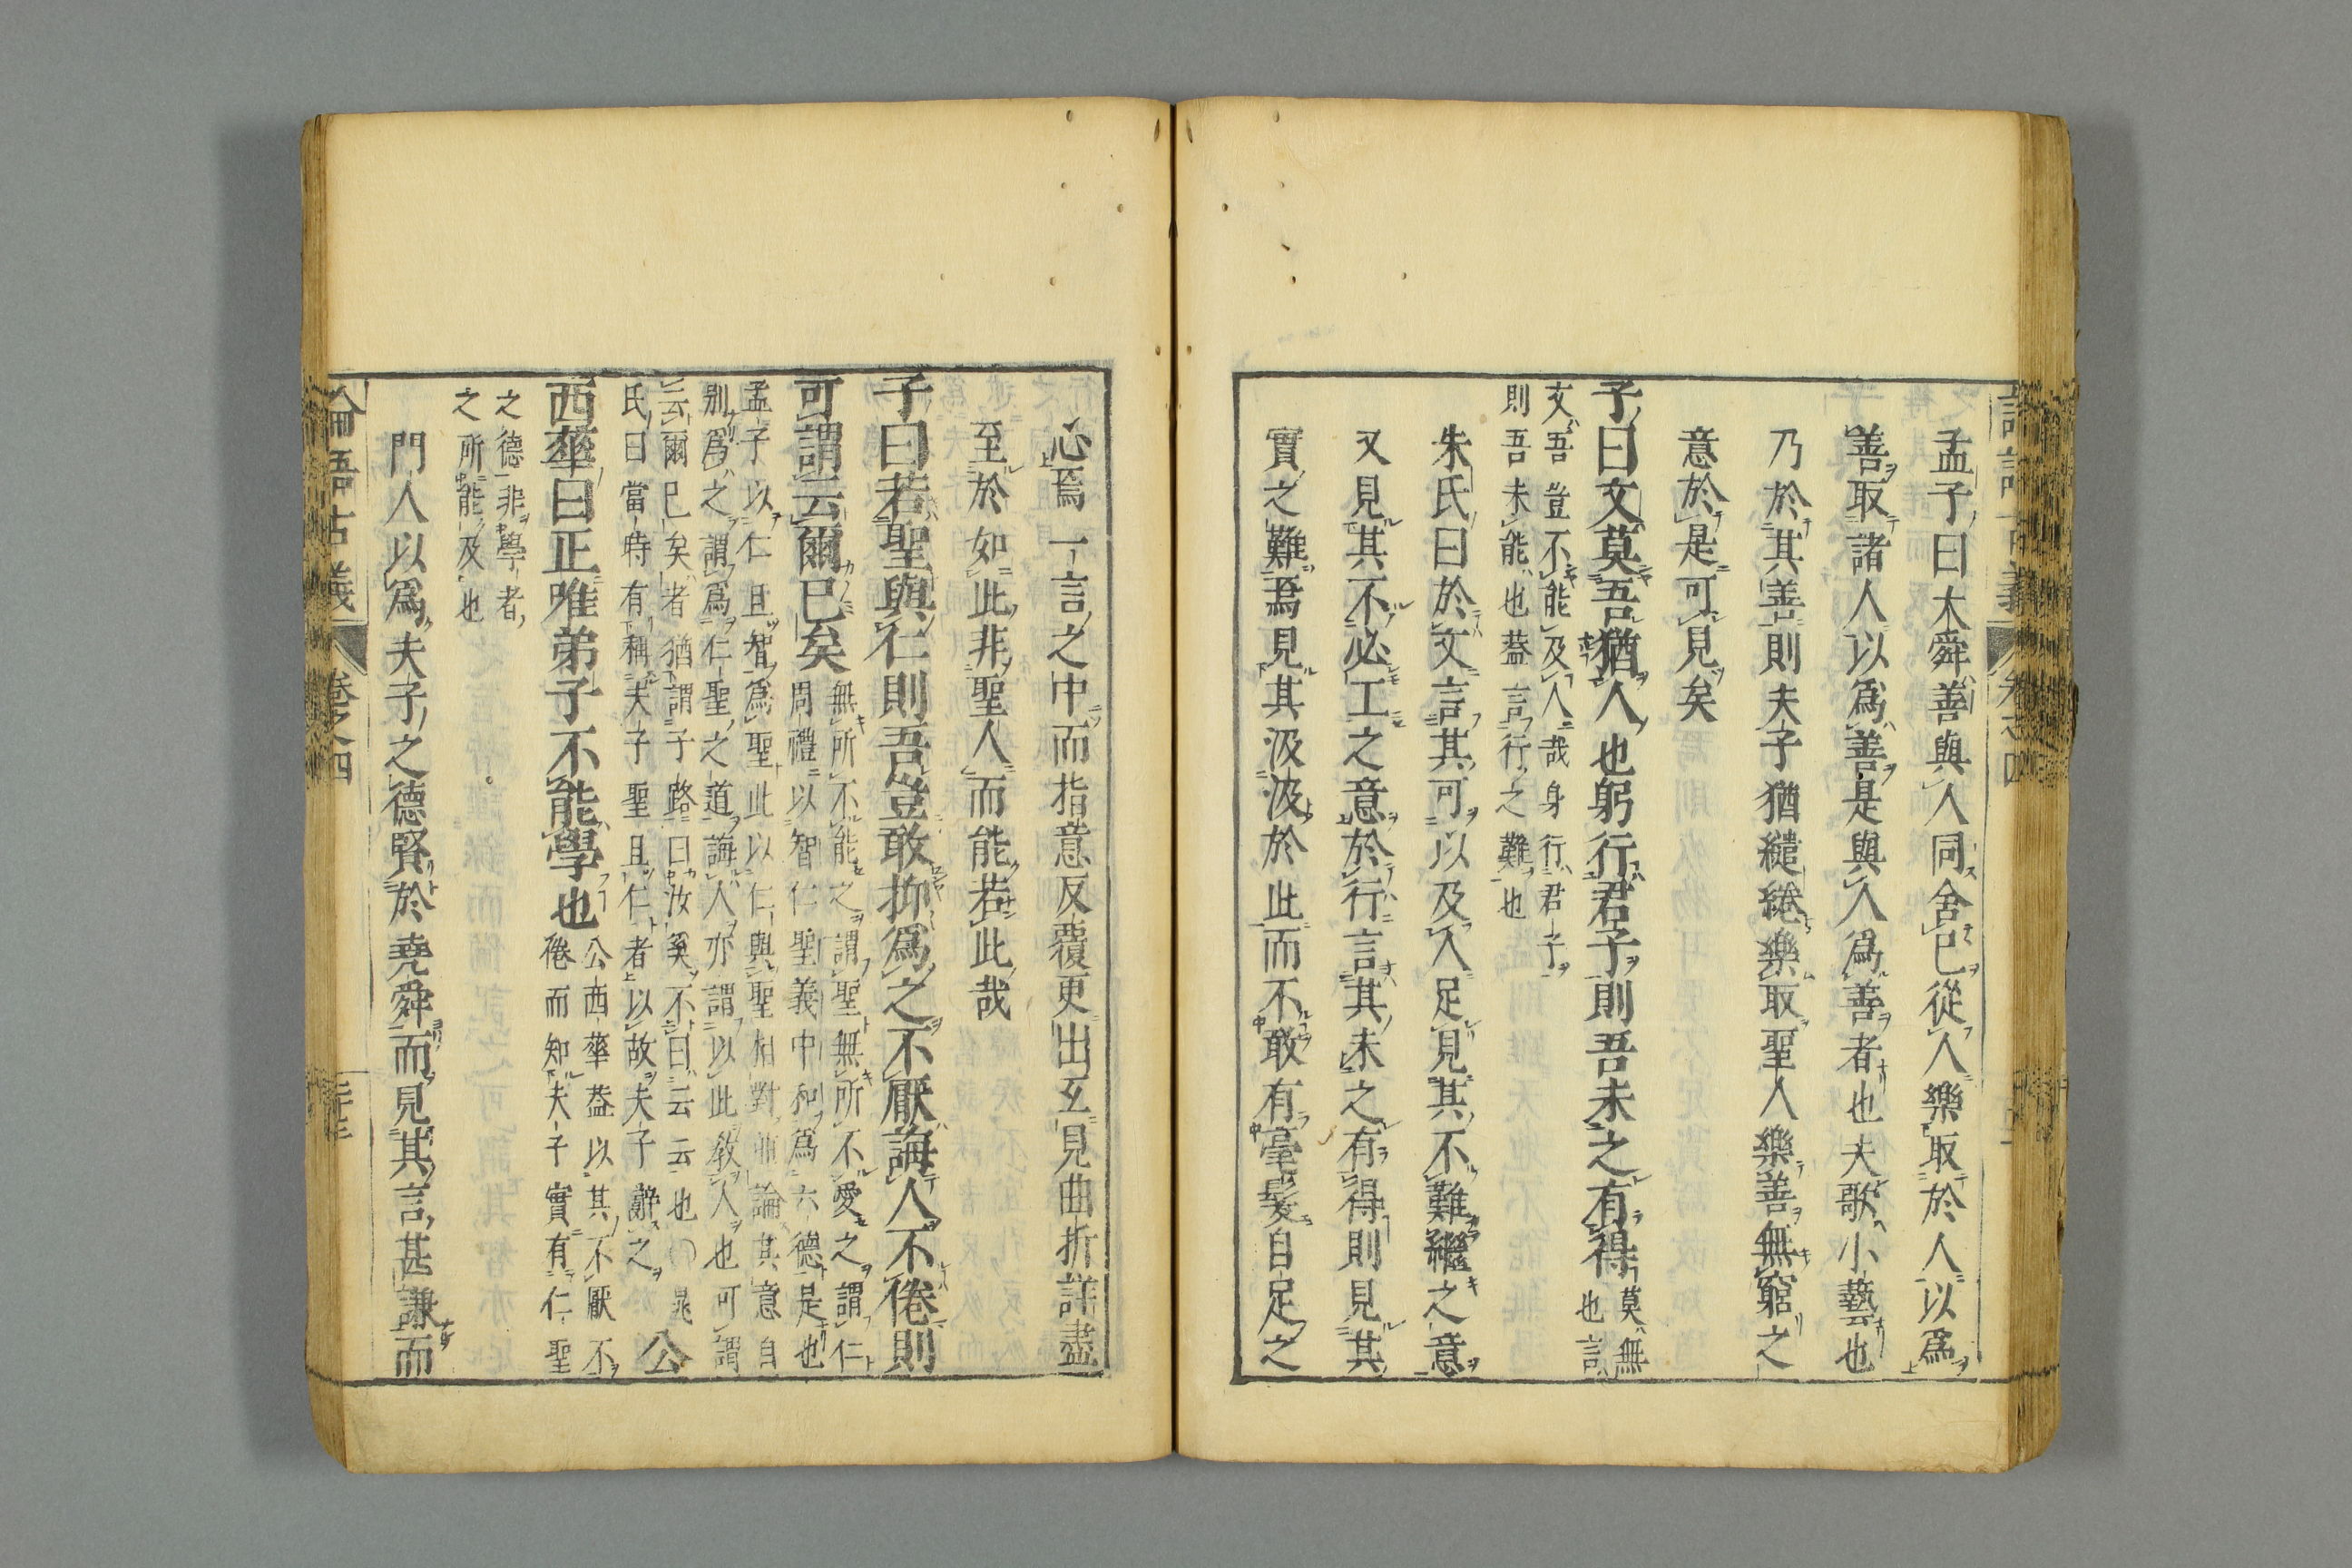 孟子曰大舜善與人同舍己從人樂取於人以爲
善取諸人以爲善是與人爲善者也夫歌小藝也
乃於其善則夫子猶繾綣樂取聖人樂善無窮之
意於是可見矣
子曰文莫吾猶人也躬行君子則吾未之有得
莫無
也言
文吾豈不能及人哉身行君子
則吾未能也葢言行之難也
朱氏曰於文言其可以及人足見其不難繼之意
又見其不必工之意於行言其未之有得則見其
實之難焉見其汲汲於此而不敢有毫髮自足之
心焉一言之中而指意反覆更出互見曲折詳盡
至於如此非聖人而能若此哉
子曰若聖與仁則吾豈敢抑爲之不厭誨人不倦則
可謂云爾已矣
無所不能之謂聖無所不愛之謂仁
周禮以智仁聖義中和爲六德是也
孟子以仁且智爲聖此以仁與聖相對並論其意自
別爲之謂爲仁聖之道誨人亦謂以此教人也可謂
云爾已矣者猶謂子路曰汝奚不曰云云也○晁
氏曰當時有稱夫子聖且仁者以故夫子辭之
公
西華曰正唯弟子不能學也
公西華葢以其不厭不
倦而知夫子實有仁聖
之德非學者
之所能及也
門人以爲夫子之德賢於堯舜而見其言甚謙而
論語古義
卷之四